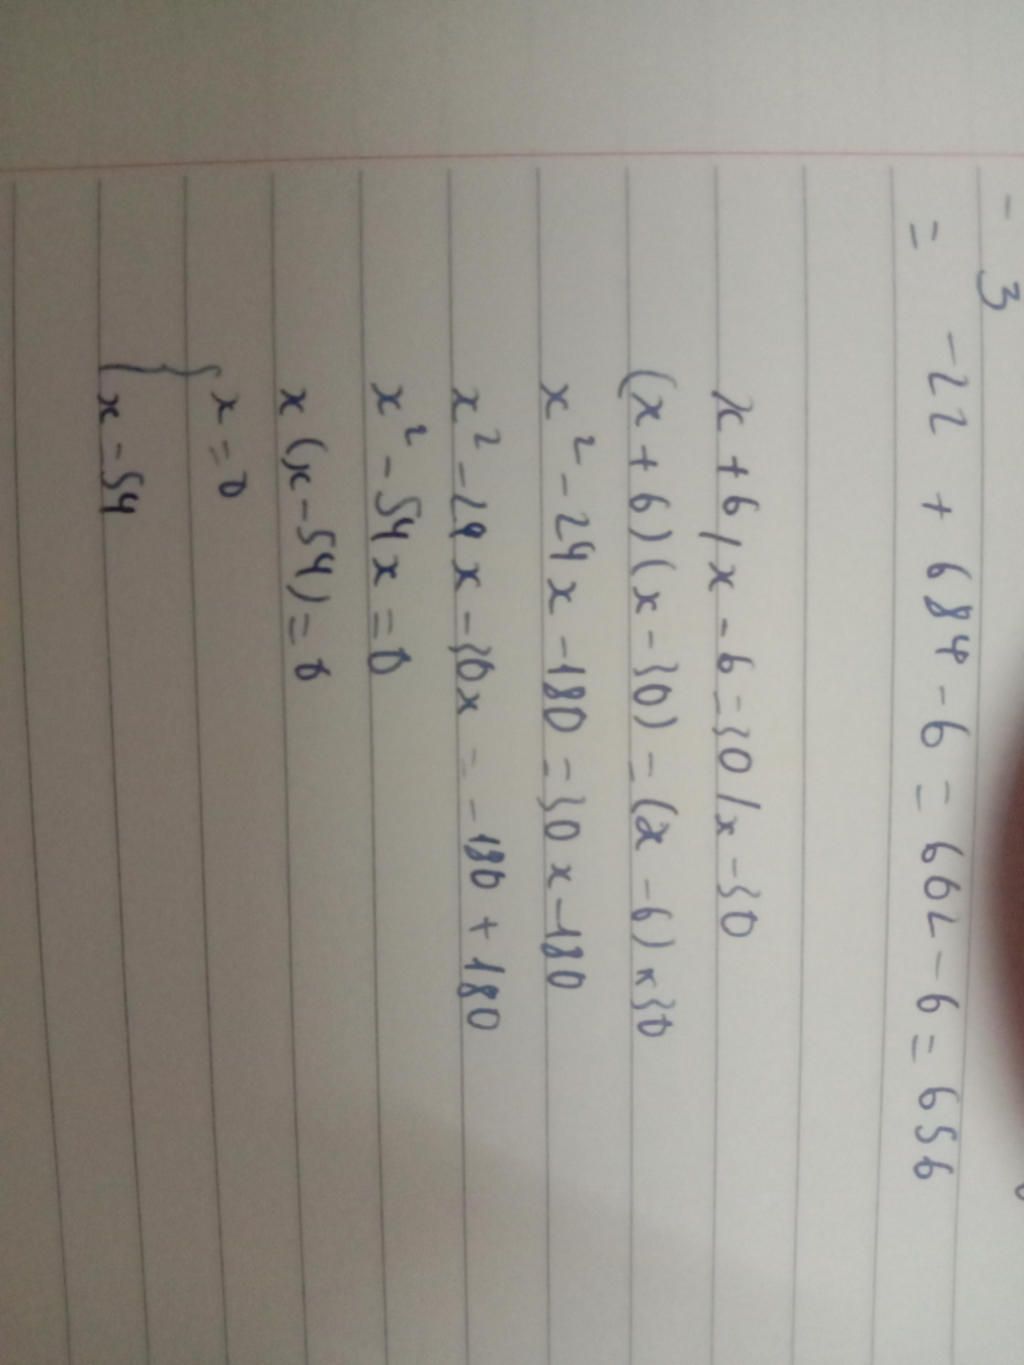 - 3
= -22 + 684 - 6 = 662 - 6 = 656
x + 6 / x - 6 = 30 / x - 30
(x + 6) (x - 30) = (x - 6) × 30
x² - 24x - 180 = 30x - 180
x² - 24x - 30x = - 180 + 180
x² - 54x = 0
x (x - 54) = 0
{ x = 0
{ x = 54